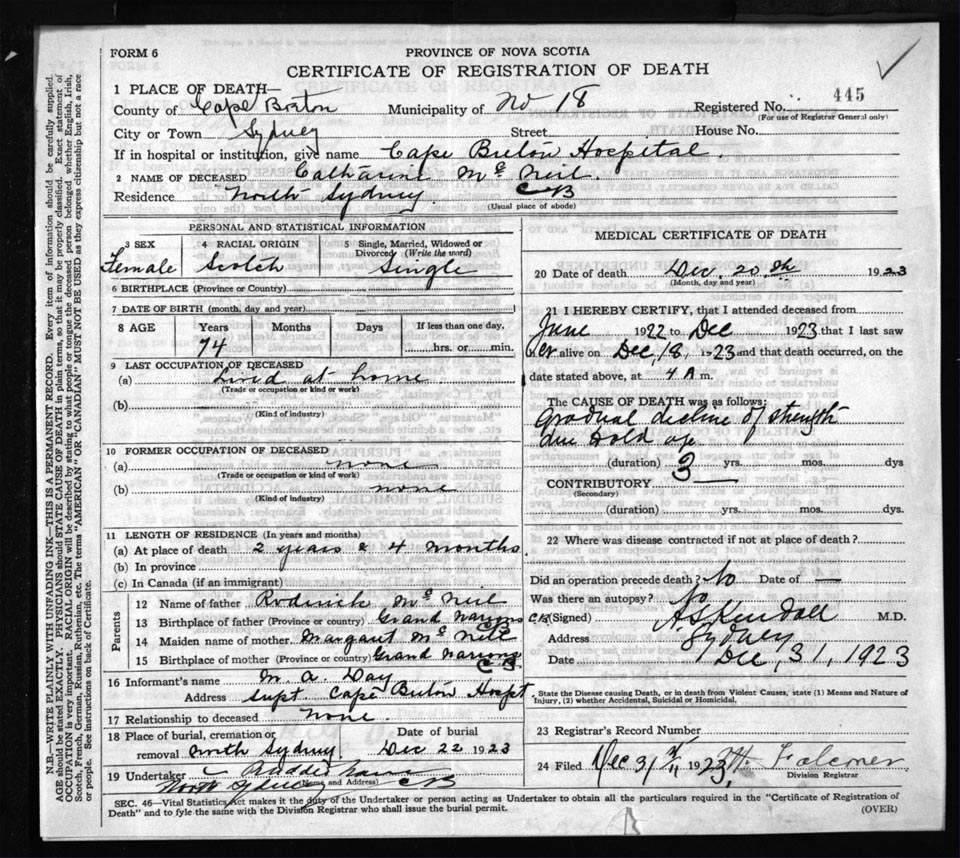 FORM 6
PROVINCE OF NOVA SCOTIA
CERTIFICATE OF REGISTRATION OF DEATH
1 PLACE OF DEATH—
County of Cape Breton Municipality of No 18 Registered No. 445
(For use of Registrar General only)
City or Town Sydney Street House No.
If in hospital or institution, give name Cape Breton Hospital.
2 NAME OF DECEASED Catharine Mc Neil.
Residence North Sydney. CB
(Usual place of abode)
PERSONAL AND STATISTICAL INFORMATION
3 SEX 4 RACIAL ORIGIN 5 Single, Married, Widowed or Divorced (Write the word)
Female Scotch Single
6 BIRTHPLACE (Province or Country)
7 DATE OF BIRTH (month, day and year)
8 AGE Years Months Days If less than one day,
74 hrs. or min.
9 LAST OCCUPATION OF DECEASED
(a) Lived at home
(Trade or occupation or kind or work)
(b)
(Kind of industry)
10 FORMER OCCUPATION OF DECEASED
(a) none
(Trade or occupation or kind or work)
(b) none
(Kind of industry)
11 LENGTH OF RESIDENCE (In years and months)
(a) At place of death 2 years & 4 months.
(b) In province
(c) In Canada (if an immigrant)
Parents
12 Name of father Roderick Mc Neil
13 Birthplace of father (Province or country) Grand Narrows CB
14 Maiden name of mother Margaret Mc Neil
15 Birthplace of mother (Province or country) Grand Narrows CB
16 Informant's name M. A. Day
Address supt Cape Breton Hospt
17 Relationship to deceased none.
18 Place of burial, cremation or Date of burial
removal North Sydney. Dec 22 1923
19 Undertaker
(Name and Address)
North Sydney CB
MEDICAL CERTIFICATE OF DEATH
20 Date of death Dec. 20th 1923
(Month, day and year)
21 I HEREBY CERTIFY, that I attended deceased from
June 1922 to Dec 1923 that I last saw
her alive on Dec 18, 1923 and that death occurred, on the
date stated above, at 4 A m.
The CAUSE OF DEATH was as follows:
Gradual decline of strength
due to old age
(duration) 3 yrs. mos. dys
CONTRIBUTORY
(Secondary)
(duration) yrs. mos. dys.
22 Where was disease contracted if not at place of death?
Did an operation precede death? No Date of —
Was there an autopsy? No
(Signed) A S Kendall M.D.
Address Sydney
Date Dec, 31, 1923
State the Disease causing Death, or in death from Violent Causes, state (1) Means and Nature of
Injury, (2) whether Accidental, Suicidal or Homicidal.
23 Registrar's Record Number
24 Filed Dec 31 1923 Falconer
Division Registrar
SEC. 46—Vital Statistics Act makes it the duty of the Undertaker or person acting as Undertaker to obtain all the particulars required in the "Certificate of Registration of
Death" and to fyle the same with the Division Registrar who shall issue the burial permit. (OVER)
N.B.—WRITE PLAINLY WITH UNFADING INK—THIS IS A PERMANENT RECORD. Every item of information should be carefully supplied.
AGE should be stated EXACTLY. PHYSICIANS should STATE CAUSE OF DEATH in plain terms, so that it may be properly classified. Exact statement of
OCCUPATION is very important. RACIAL ORIGIN will be described by stating to what people or tongue the deceased person belonged whether English, Irish,
Scotch, French, German, Russian, Ruthenian, etc. The terms "AMERICAN" OR "CANADIAN" MUST NOT BE USED as they express citizenship but not a race
or people. See instructions on back of Certificate.